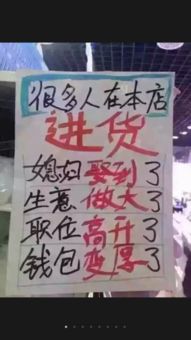 很多人在本店
进货
媳妇娶到了
生意做大了
职位高升了
钱包变厚了